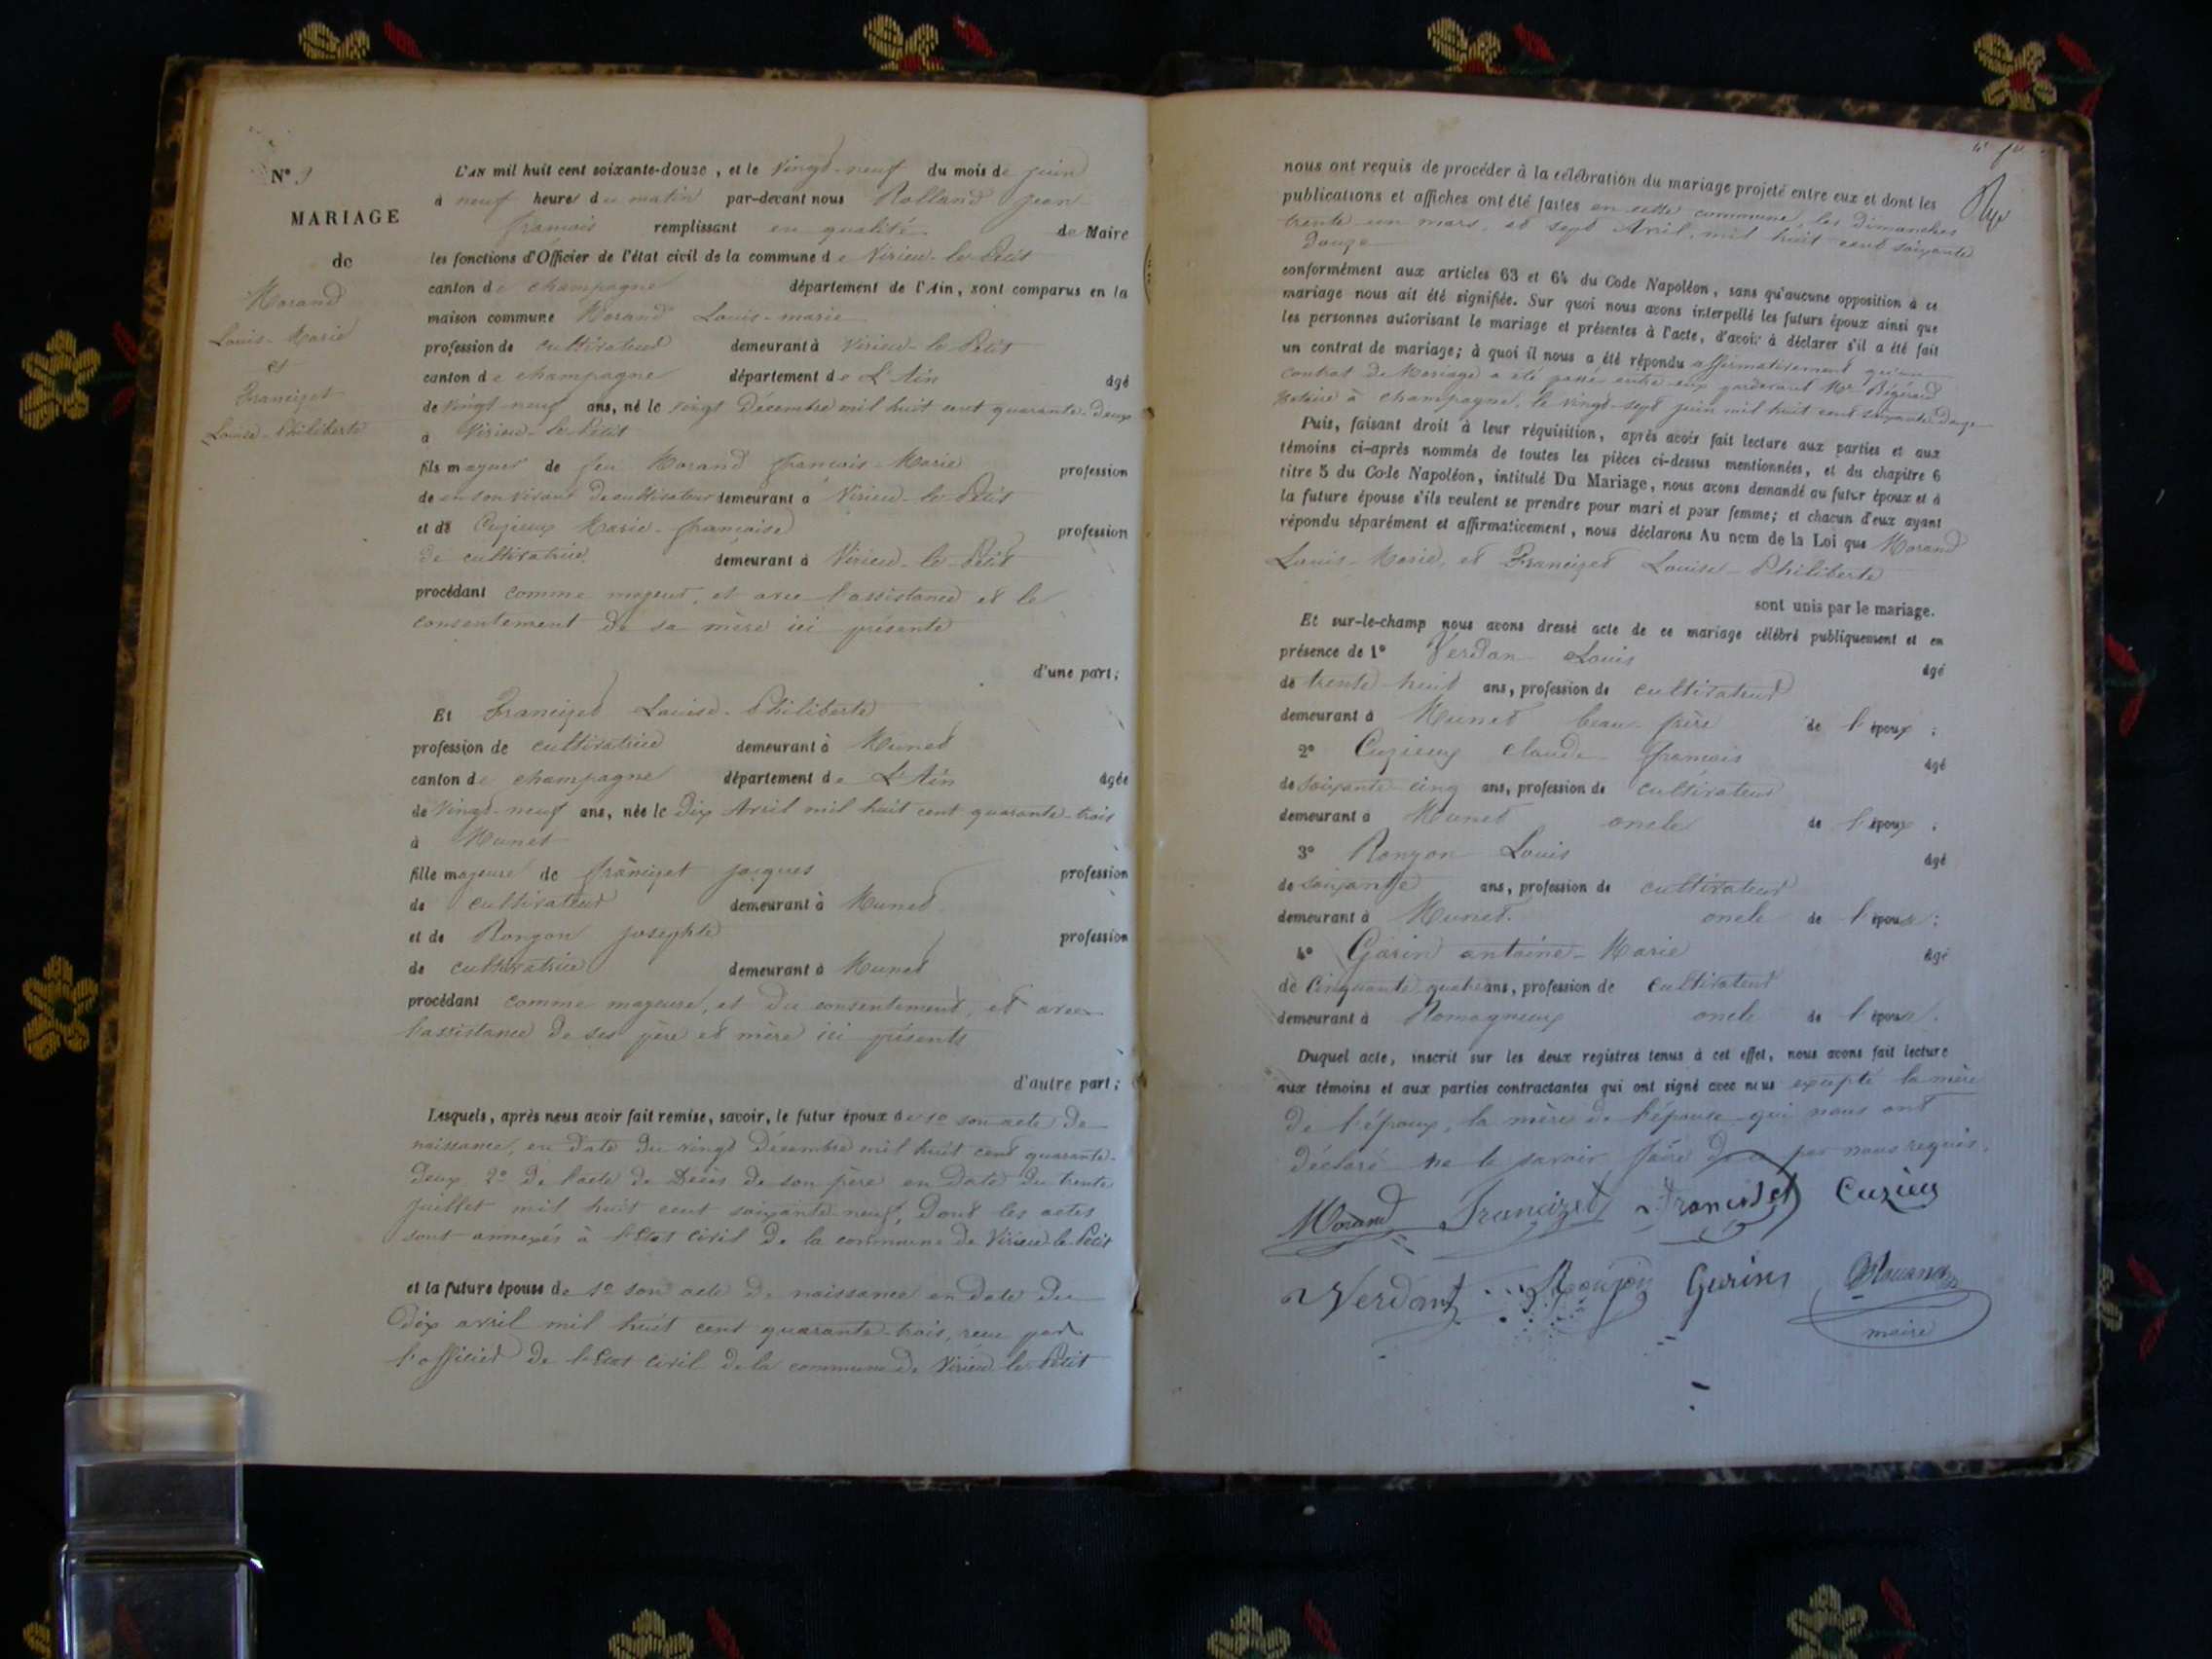 N° 3
MARIAGE
de
Morand
Louis-Marie
et
Francizet
Louise-Philiberte
L'AN mil huit cent soixante-douze, et le vingt-neuf du mois de juin
à neuf heures du matin par-devant nous Rolland jean
françois remplissant en qualité de Maire
les fonctions d'Officier de l'état civil de la commune de Virieu-le-Petit
canton de champagne département de l'Ain, sont comparus en la
maison commune Morand Louis-marie
profession de cultivateur demeurant à Virieu-le-Petit
canton de champagne département de L'Ain âgé
de vingt-neuf ans, né le vingt Décembre mil huit cent quarante-deux
à Virieu-le-Petit
fils majeur de feu Morand françois-Marie profession
de en son vivant de cultivateur demeurant à Virieu-le-Petit
et de Cuzieux Marie-françoise profession
de cultivatrice demeurant à Virieu-le-Petit
procédant comme majeur, et avec l'assistance et le
consentement de sa mère ici présente
d'une part;
Et Francizet Louise-Philiberte
profession de cultivatrice demeurant à Munet
canton de champagne département de L'Ain âgée
de vingt-neuf ans, née le dix Avril mil huit cent quarante-trois
à Munet
fille majeure de françizet jacques profession
de cultivateur demeurant à Munet
et de Ronzon josephte profession
de cultivatrice demeurant à Munet
procédant comme majeure, et du consentement, et avec
l'assistance de ses père et mère ici présents
d'autre part;
Lesquels, après nous avoir fait remise, savoir, le futur époux de 1° son acte de
naissance, en date du vingt Décembre mil huit cent quarante-
deux 2° de l'acte de Décès de son père en date du trente
juillet mil huit cent soixante-neuf, dont les actes
sont annexés à l'Etat civil de la commune de Virieu-le-Petit
et la future épouse de 1° son acte de naissance en date du
dix avril mil huit cent quarante-trois, reçu par
l'officier de l'Etat civil de la commune de Virieu-le-Petit
nous ont requis de procéder à la célébration du mariage projeté entre eux et dont les
publications et affiches ont été faites en cette commune, les Dimanches
trente un mars, et sept Avril, mil huit cent soixante
douze
conformément aux articles 63 et 64 du Code Napoléon, sans qu'aucune opposition à ce
mariage nous ait été signifiée. Sur quoi nous avons interpellé les futurs époux ainsi que
les personnes autorisant le mariage et présentes à l'acte, d'avoir à déclarer s'il a été fait
un contrat de mariage; à quoi il nous a été répondu affirmativement qu'un
contrat de Mariage a été passé entre eux pardevant Me
Notaire à champagne, le vingt-sept juin mil huit cent soixante-douze
Puis, faisant droit à leur réquisition, après avoir fait lecture aux parties et aux
témoins ci-après nommés de toutes les pièces ci-dessus mentionnées, et du chapitre 6
titre 5 du Code Napoléon, intitulé Du Mariage, nous avons demandé au futur époux et à
la future épouse s'ils veulent se prendre pour mari et pour femme; et chacun d'eux ayant
répondu séparément et affirmativement, nous déclarons Au nom de la Loi que Morand
Louis-Marie, et Francizet Louise-Philiberte
sont unis par le mariage.
Et sur-le-champ nous avons dressé acte de ce mariage célébré publiquement et en
présence de 1° Verdan Louis âgé
de trente-huit ans, profession de cultivateur
demeurant à Munet beau-frère de l'époux;
2° Cuzieux claude françois âgé
de soixante-cinq ans, profession de cultivateur
demeurant à Munet oncle de l'époux;
3° Ronzon Louis âgé
de soixante ans, profession de cultivateur
demeurant à Munet. oncle de l'épouse;
4° Garin antoine-Marie âgé
de Cinquante quatre ans, profession de cultivateur
demeurant à Romagneux oncle de l'épouse.
Duquel acte, inscrit sur les deux registres tenus à cet effet, nous avons fait lecture
aux témoins et aux parties contractantes qui ont signé avec nous excepté la mère
de l'époux, la mère de l'épouse qui nous ont
déclaré ne le savoir faire de ce par nous requis.
Morand Francizet Francisset Cuzieu
Verdant Gurin
maire